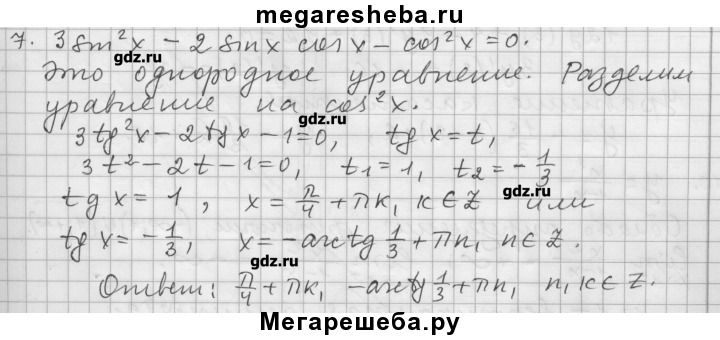 megaresheba.ru
7. 3 sin²x − 2 sinx cosx − cos²x = 0.
gdz.ru
Это однородное уравнение. Разделим
уравнение на cos²x.
gdz.ru
3tg²x − 2tgx − 1 = 0, tgx = t,
3t² − 2t − 1 = 0, t₁ = 1, t₂ = −1/3
gdz.ru
tgx = 1, x = π/4 + πk, k ∈ Z или
tgx = −1/3, x = −arctg 1/3 + πn, n ∈ Z.
gdz.ru
Ответ: π/4 + πk, −arctg 1/3 + πn, n, k ∈ Z.
Мегарешеба.ру